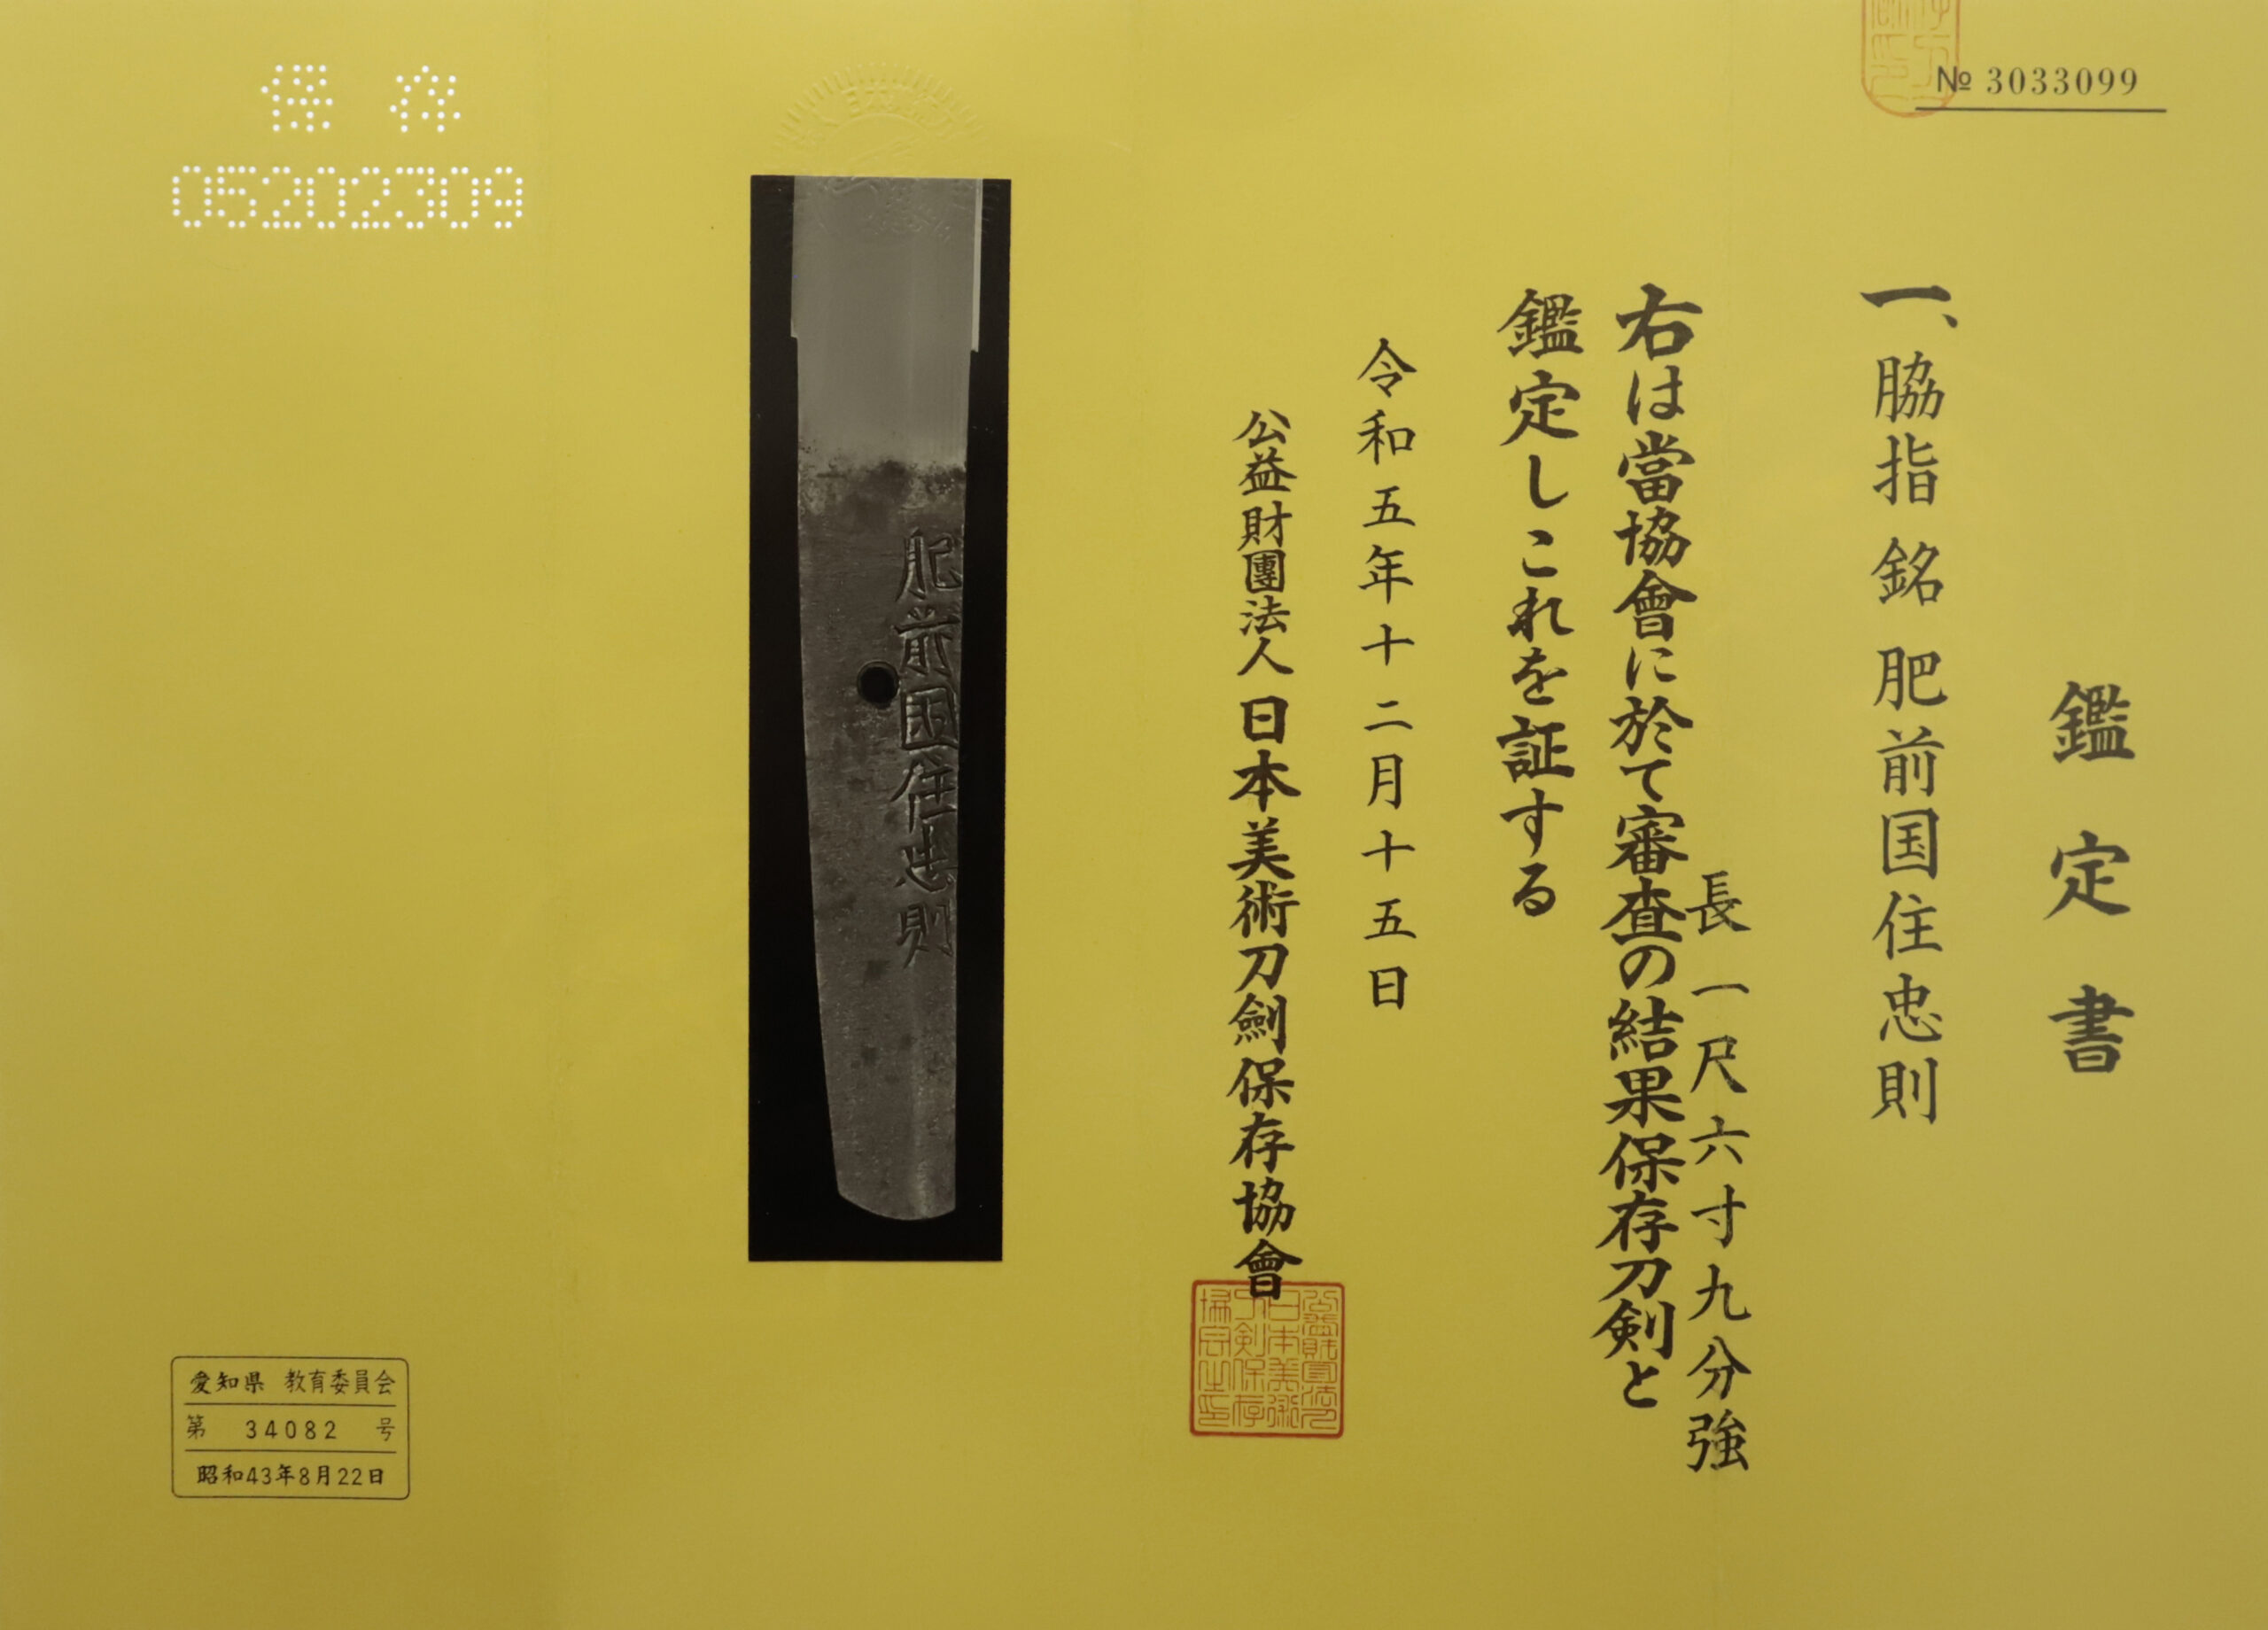 № 3033099
鑑定書
一、脇指 銘 肥前国住忠則
長 一尺六寸九分強
右は當協會に於て審査の結果保存刀剣と
鑑定しこれを証する
令和五年十二月十五日
公益財團法人 日本美術刀劍保存協會
肥前國住忠則
保存
05202309
愛知県 教育委員会
第 34082 号
昭和43年8月22日